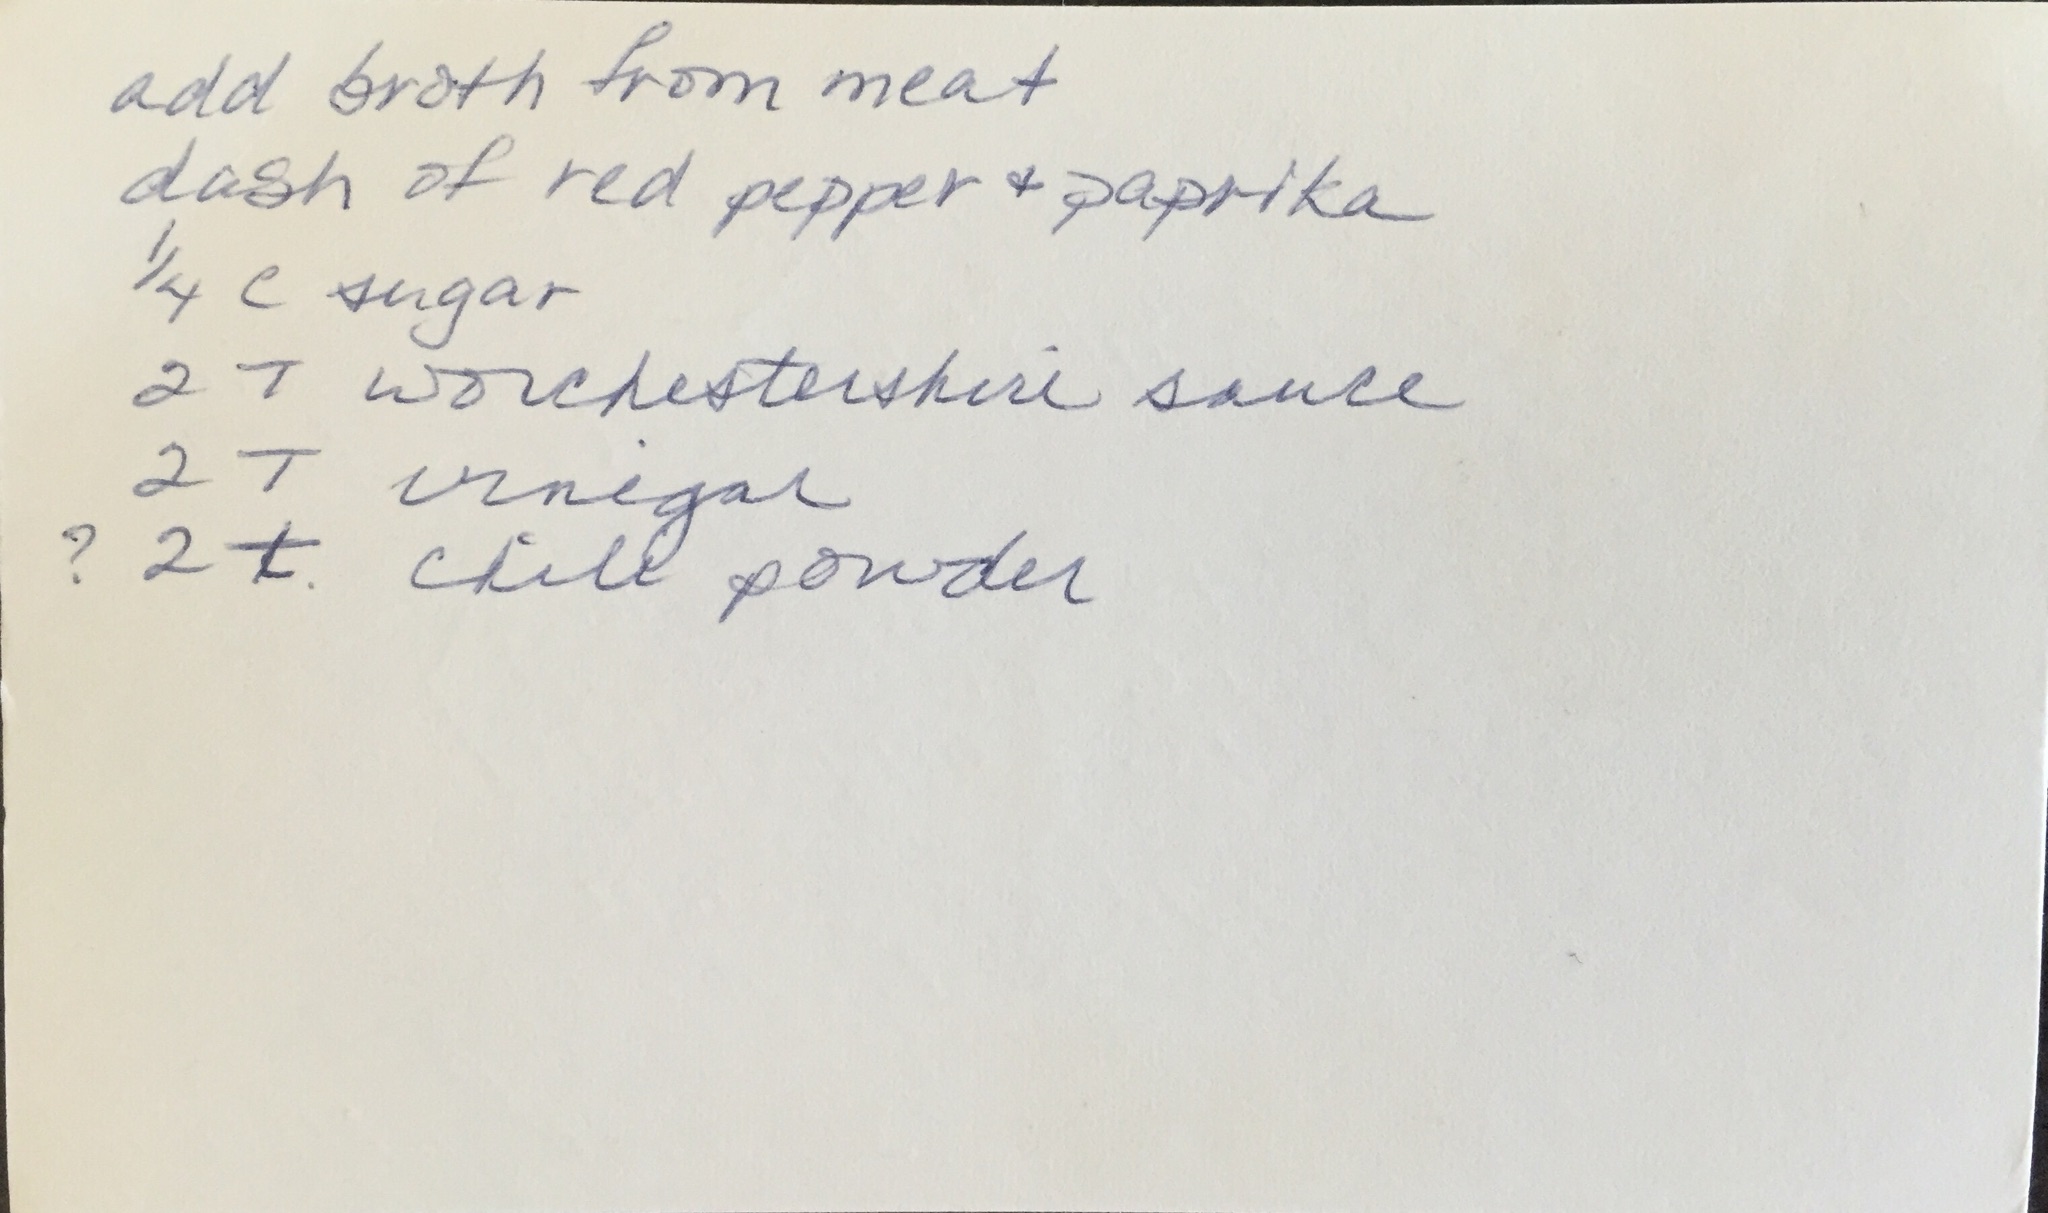 add broth from meat
dash of red pepper + paprika
1/4 c sugar
2 T worchestershire sauce
2 T vinegar
? 2 t. chili powder